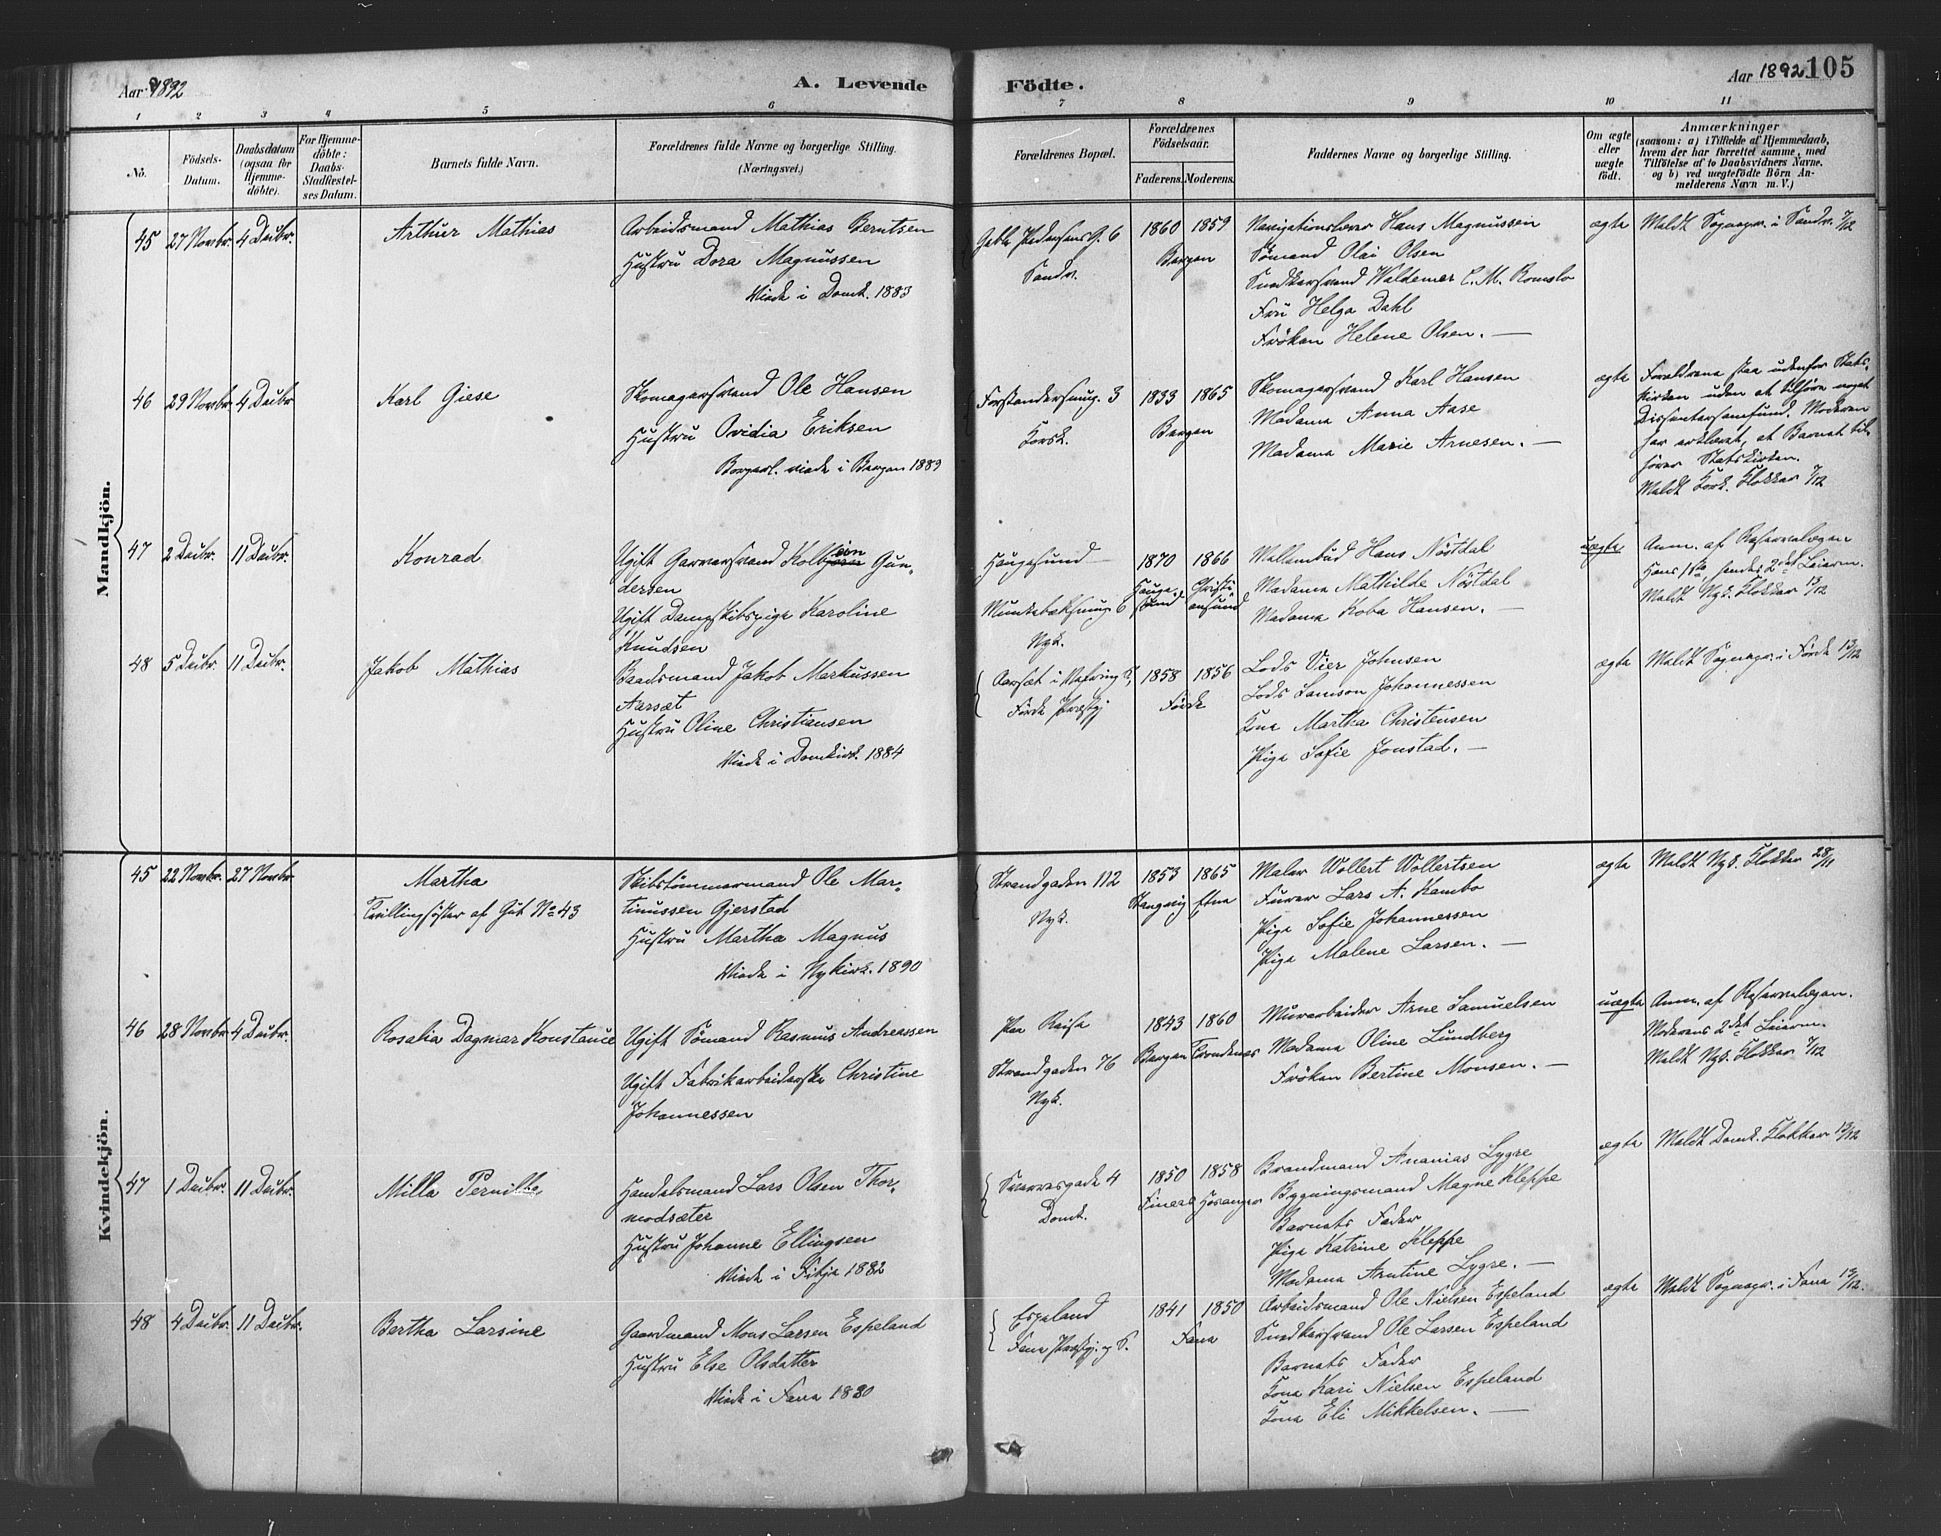 Aar 1892
A. Levende
Födte.
Aar 1892
105
1 2 3 4 5 6 7 8 9 10 11
No.
Födsels-
Datum.
Daabsdatum
(ogsaa for
Hjemme-
döbte).
For Hjemme-
döbte:
Daabs-
Stadfæstel-
ses Datum.
Barnets fulde Navn.
Forældrenes fulde Navne og borgerlige Stilling.
(Næringsvei.)
Forældrenes Bopæl.
Forældrenes
Födselsaar.
Faderens. Moderens.
Faddernes Navne og borgerlige Stilling.
Om ægte
eller
uægte
födt.
Anmærkninger
(saasom: a) i Tilfælde af Hjemmedaab,
hvem der har forrettet samme, med
Tilföielse af to Daabsvidners Navne,
og b) ved uægtefödte Börn An-
melderens Navn m. V.)
Mandkjön.
45 27 Novbr. 4 Decbr. Arthur Mathias
Arbeidsmand Mathias Berntsen
Hustru Dora Magnussen
Viede i Domk. 1883
Gable Pedersens G. 6
Sandv.
1860 1859
Bergen
Navigationslærer Hans Magnussen
Sömand Olai Olsen
Snedkersvend Waldemar C. M. Romslo
Fru Helga Dahl
Fröken Helene Olsen. —
ægte
Meldt Sognepr. i Sandv. 7/12
46 29 Novbr. 4 Decbr Karl Giese
Skomagersvend Ole Hansen
Hustru Ovidia Eriksen
Borgerl. viede i Bergen 1889
Forstandersmug. 3
Korsk.
1833 1865
Bergen
Skomagersvend Karl Hansen
Madame Anna Aase
Madame Marie Arnesen. —
ægte
Forældrene staa udenfor Stats-
kirken uden at tilhöre noget
Dissentersamfund. Moderen
har erklæret, at Barnet til-
hörer Statskirken.
Meldt Kork. Klokker 7/12
47 2 Decbr. 11 Decbr. Konrad
Ugift Garversvend Kolbjörn Gun-
dersen
Ugift Dampskibspige Karoline
Knudsen
Haugesund
Munkebæksmug. 6
Nyk.
1870 1866
Hauge-
sund
Christi-
ansund
Mellembud Hans Nöstdal
Madame Mathilde Nöstdal
Madame Koba Hansen. —
uægte
Anm. af Reservelægen
Hans 1ste, hendes 2det Leierm.
Meldt Nyk. Klokker 13/12
48 5 Decbr. 11 Decbr. Jakob Mathias
Baadsmand Jakob Markussen
Aarsæt
Hustru Oline Christiansen
Viede i Domkirk. 1884
Aarsæt i
Förde Præstgj
1858 1856
Förde
Lods Vier Johnsen
Lods Samson Johannessen
Kone Martha Christensen
Pige Sofie Jonstad. —
ægte
Meldt Sognepr. i Förde 13/12
Kvindekjön.
45 22 Novbr. 27 Novbr. Martha
Tvillingsöster af Gut No 43
Skibstömmermand Ole Mar-
tinussen Gjerstad
Hustru Martha Magnus
Viede i Nykirk. 1890
Strandgaden 112
Nyk.
1853 1865
Stangvig Etne
Maler Wollert Wollertsen
Furer Lars A. Kambo
Pige Sofie Johannessen
Pige Malene Larsen. —
ægte
Meldt Nyk. Klokker 28/11
46 28 Novbr. 4 Decbr. Rosalia Dagmar Konstance
Ugift Sömand Rasmus Andreassen
Ugift Fabrikarbeiderske Christine
Johannessen
Paa Reise
Strandgaden 76
Nyk.
1843 1860
Bergen Trondenæs
Murarbeider Arne Samuelsen
Madame Oline Lundberg
Fröken Bertine Monsen. —
uægte
Anm. af Reservelægen.
Moderens 2det Leierm.
Meldt Nyk. Klokker 7/12
47 1 Decbr. 11 Decbr. Milla Pernille
Handelsmand Lars Olsen Thor-
modsæter
Hustru Johanne Ellingsen
Viede i Fitje 1882
Skarvesgade 4
Domk.
1850 1858
Finere Hosanger
Brandmand Ananias Lygre
Bygningsmand Magne Kleppe
Barnets Fader
Pige Katrine Kleppe
Madame Arntine Lygre. —
ægte
Meldt Domk. Klokker 13/12
48 4 Decbr. 11 Decbr. Bertha Larsine
Gaardmand Mons Larsen Espeland
Hustru Else Olsdatter
Viede i Fana 1880
Espeland
Fana Præstgj. og S.
1841 1850
Fana
Arbeidsmand Ole Nielsen Espeland
Snedkersvend Ole Larsen Espeland
Barnets Fader
Kone Kari Nielsen Espeland
Kone Eli Mikkelsen. —
ægte
Meldt Sognepr. i Fana 13/12.